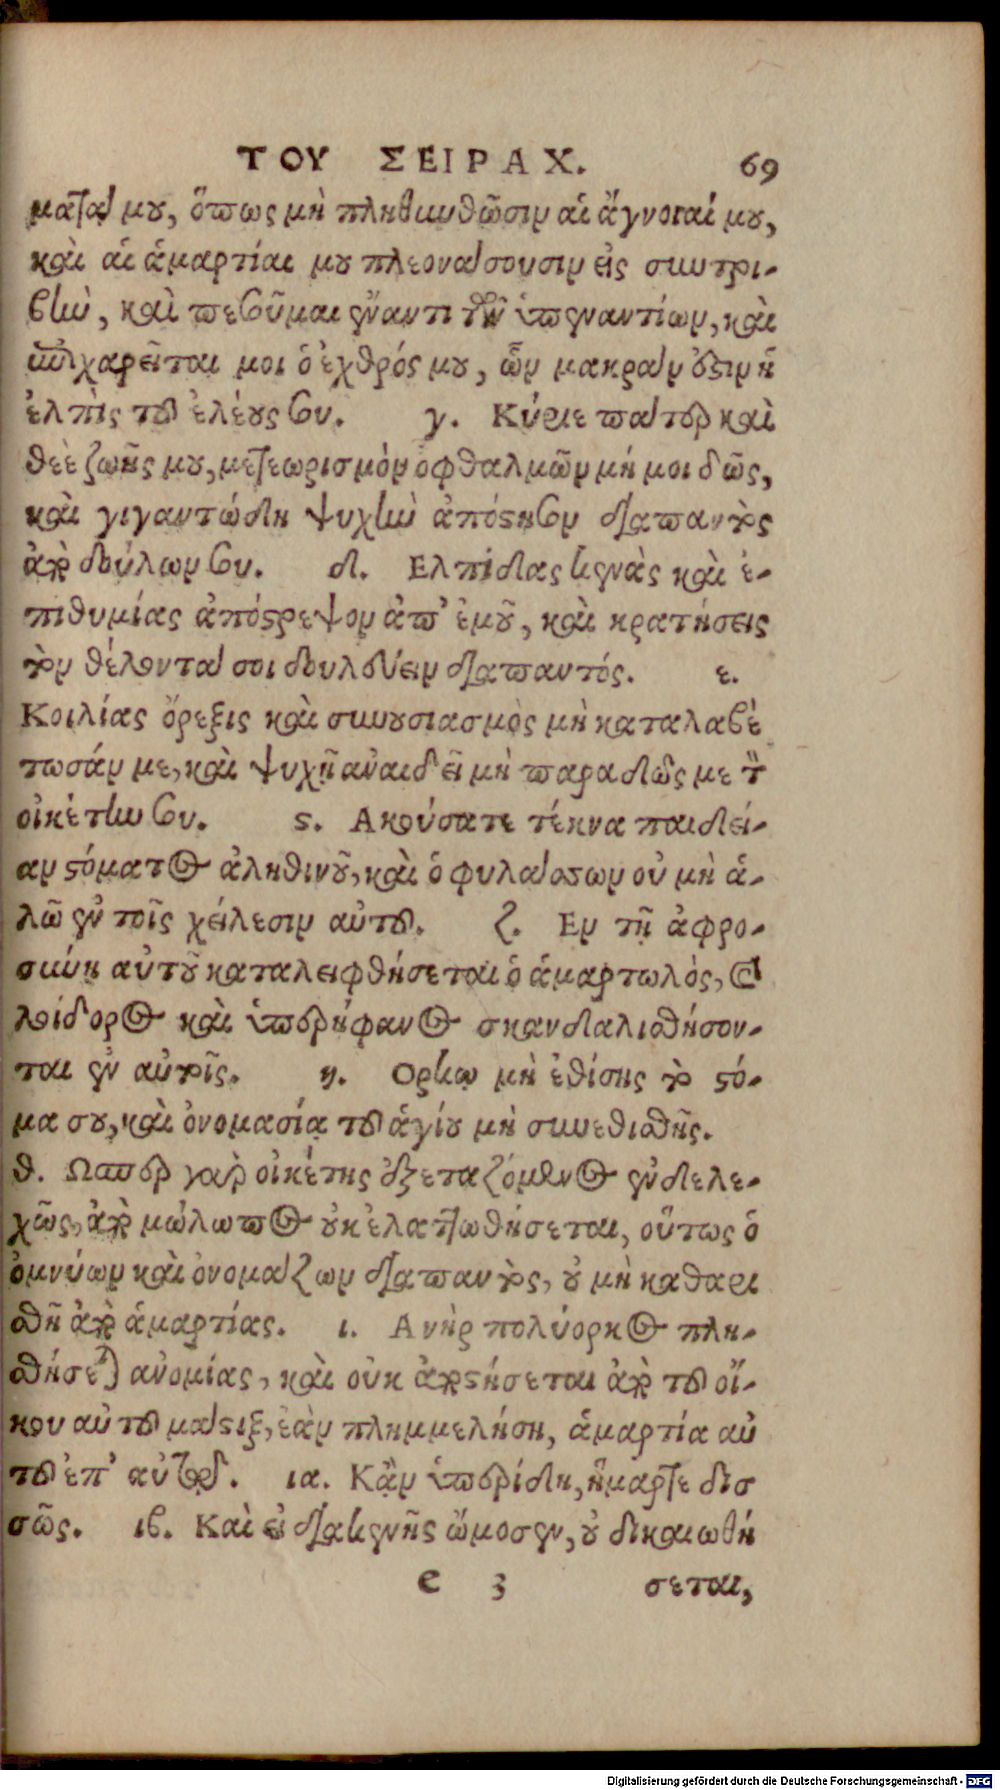 ΤΟΥ ΣΕΙΡΑΧ. 69
ματά μου, ὅπως μὴ πληθυνθῶσιν αἱ ἄγνοιαί μου,
καὶ αἱ ἁμαρτίαι μου πλεονάσουσιν εἰς συντρι-
βὴν, καὶ πεσοῦμαι ἔναντι τῶν ὑπεναντίων, καὶ
ἐπιχαρεῖται μοι ὁ ἐχθρός μου, ὧν μακράν ἐστιν ἡ
ἐλπὶς τοῦ ἐλέους σου. γ. Κύριε πάτερ καὶ
θεὲ ζωῆς μου, μετεωρισμὸν οφθαλμῶν μή μοι δῶς,
καὶ γιγαντώδη ψυχὴν ἀπόστησον διαπαντὸς
ἀπὸ δούλων σου. δ. Ελπίδας κενὰς καὶ ἐ-
πιθυμίας ἀπόστρεψον ἀπ’ ἐμοῦ, καὶ κρατήσεις
τὸν θέλοντά σοι δουλεύειν διαπαντός. ε.
Κοιλίας ὄρεξις καὶ συνουσιασμὸς μὴ καταλαβέ
τωσάν με, καὶ ψυχῇ ἀναιδεῖ μὴ παραδῶς με τὸν
οἰκέτην σου. ϛ. Ακούσατε τέκνα παιδεί-
αν στόματος ἀληθινοῦ, καὶ ὁ φυλάσσων οὐ μὴ ἁ-
λῶ ἐν τοῖς χείλεσιν αὐτοῦ. ζ. Εν τῇ ἀφρο-
σύνη αὐτοῦ καταλειφθήσεται ὁ ἁμαρτωλὸς, καὶ
λοίδορος καὶ ὑπερήφανος σκανδαλισθήσον-
ται ἐν αὐτοῖς. η. Ορκῳ μὴ ἐθίσης τὸ στό-
μα σου, καὶ ὀνομασίᾳ τοῦ ἁγίου μὴ συνεθισθῇς.
θ. Ωσπερ γὰρ οἰκέτης ἐξεταζόμενος ἐνδελε-
χῶς, ἀπὸ μώλωπος οὐκ ἐλαττωθήσεται, οὕτως ὁ
ὀμνύων καὶ ὀνομάζων διαπαντὸς, οὐ μὴ καθαρι
σθῆ ἀπὸ ἁμαρτίας. ι. Ανὴρ πολύορκος πλη-
σθήσεται ἀνομίας, καὶ οὐκ ἀποστήσεται ἀπὸ τοῦ οἴ-
κου αὐτοῦ μάστιξ, ἐὰν πλημμελήση, ἁμαρτία αὐ
τοῦ ἐπ’ αὐτῷ. ια. Κἂν ὑπερίδη, ἥμαρτε δισ
σῶς. ιβ. Καὶ εἰ διακενῆς ὤμοσεν, οὐ δικαιωθή
e 3 σεται,
Digitalisierung gefördert durch die Deutsche Forschungsgemeinschaft - DFG